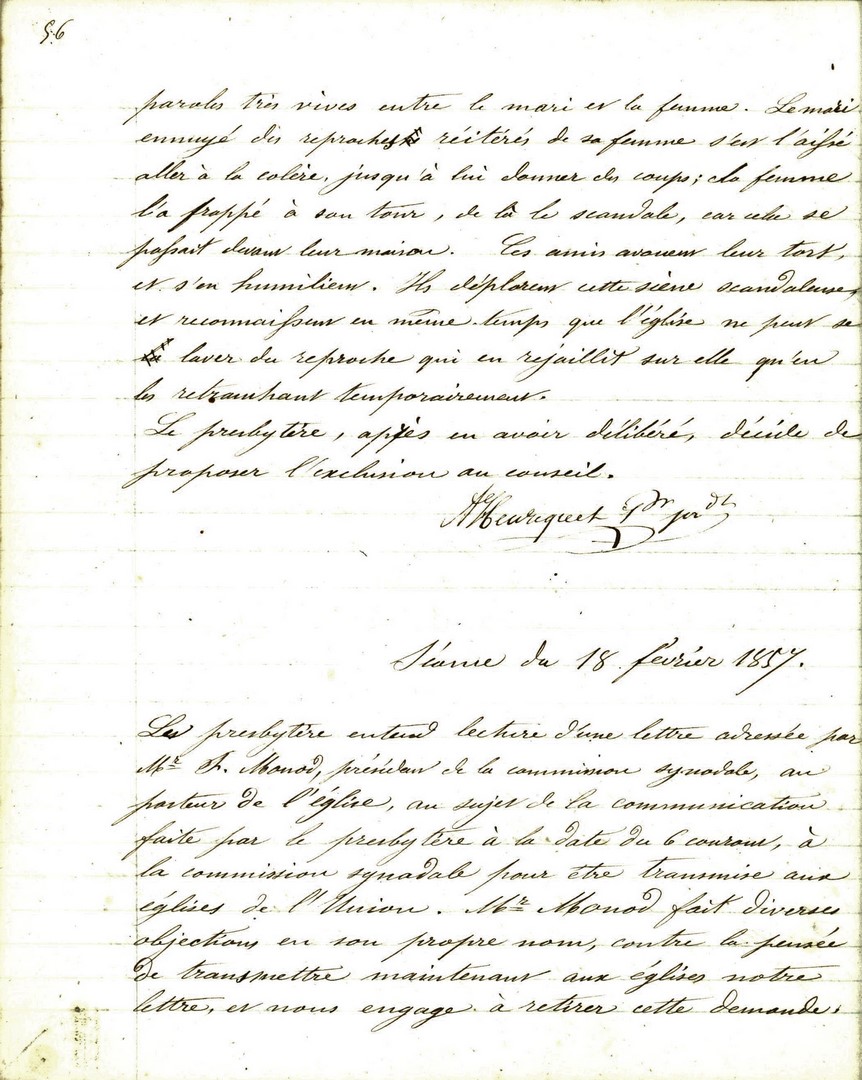 56
paroles très vives entre le mari et la femme. Le mari
ennuyé des reproches réitérés de sa femme s'est l'aissé
aller à la colère, jusqu'à lui donner des coups; la femme
l'a frappé à son tour, de là le scandale, car cela se
passait devant leur maison. Ces amis avouent leur tort,
et s'en humilient. Ils déplorent cette scène scandaleuse,
et reconnaissent en même temps que l'église ne peut se
laver du reproche qui en rejaillit sur elle qu'en
les retranchant temporairement.
Le presbytère, après en avoir délibéré, décide de
proposer l'exclusion au conseil.
Henriquet
Séance du 18 février 1857.
Le presbytère entend lecture d'une lettre adressée par
Mr F. Monod, président de la commission synodale, au
pasteur de l'église, au sujet de la communication
faite par le presbytère à la date du 6 courant, à
la commission synodale pour être transmise aux
églises de l'Union. Mr Monod fait diverses
objections en son propre nom, contre la pensée
de transmettre maintenant aux églises notre
lettre, et nous engage à retirer cette demande.